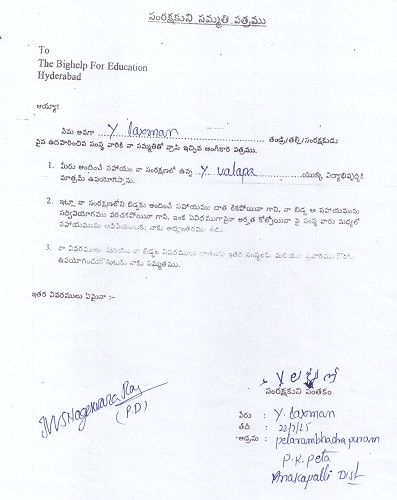 సంరక్షకుని సమ్మతి పత్రము
To
The Bighelp For Education
Hyderabad
అయ్యా!
నేను అనగా Y laxman తండ్రి/తల్లి/సంరక్షకుడు
పైన ఉదహరించిన సంస్థ వారికి నా సమ్మతితో వ్రాసి ఇచ్చిన అంగీకార పత్రము.
1. మీరు అందించే సహాయం నా సంరక్షణలో ఉన్న Y valapa యొక్క విద్యాభివృద్ధికి
మాత్రమే ఉపయోగిస్తాను.
2. ఇట్లా నా సంరక్షణలోని బిడ్డకు అందించే సహాయము దాత లేకపోయినా గాని, నా బిడ్డ ఆ సహాయమును
సద్వినియోగము పరచకపోయినా గాని, ఇంక ఏవిధముగానైనా అర్హత కోల్పోయినా పై సంస్థ వారు మధ్యలో
సహాయమును ఆపివేయుటకు నాకు అభ్యంతరము లేదు.
3. నా వివరములు మరియు నా బిడ్డల వివరములు దాతలకు ఇతర సంస్థలకు మరియు ప్రచారము కొరకు
ఉపయోగించుకొనుటకు నాకు సమ్మతము.
ఇతర వివరములు ఏమైనా :-
Y లక్ష్మణ్
సంరక్షకుని సంతకం
(P.D)
పేరు : Y. laxman
తేదీ : 22/7/15
అడ్రసు : pelarambhadra puram
P.K. peta
Anakapalli Dist